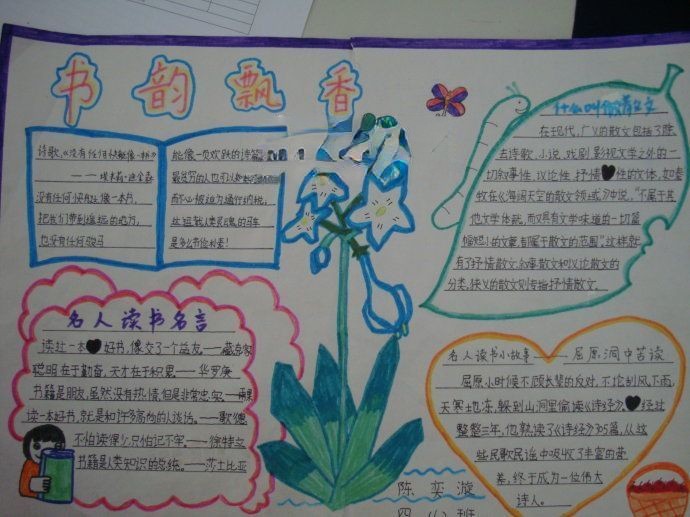 书韵飘香
诗歌《没有任何快艇像一本书》
——埃米莉·迪金森
没有任何快艇像一本书，
把我们带到遥远的地方，
也没有任何骏马
能像一页欢跃的诗篇
最贫穷的人也可以
而不必被迫为通行纳税，
这运载人类灵魂的马车
是多么节俭朴素！
名人读书名言
读过一本好书，像交了一个益友。——藏克家
聪明在于勤奋，天才在于积累——华罗庚
书籍是朋友，虽然没有热情，但是非常忠实。——雨果
读一本好书，就是和许多高尚的人谈话。——歌德
不怕读得少，只怕记不牢。——徐特立
书籍是人类知识的总统。——莎士比亚
什么叫做散文
在现代，广义的散文包括了除
去诗歌、小说、戏剧、影视文学之外的一
切叙事性、议论性、抒情性的文体，如秦
牧在《海阔天空的散文领域》中说，"不属于其
他文学体裁，而又具有文学味道的一切篇
幅短小的文章，都属于散文的范围"。这样就
有了抒情散文、叙事散文和议论散文的
分类，狭义的散文则专指抒情散文。
名人读书小故事——屈原洞中苦读
屈原小时候不顾长辈的反对，不论刮风下雨，
天寒地冻，躲到山洞里偷读《诗经》。经过
整整三年，他熟读了《诗经》305篇，从这
些民歌民谣中吸收了丰富的营
养，终于成为一位伟大
诗人。
陈奕漩
四（1）班